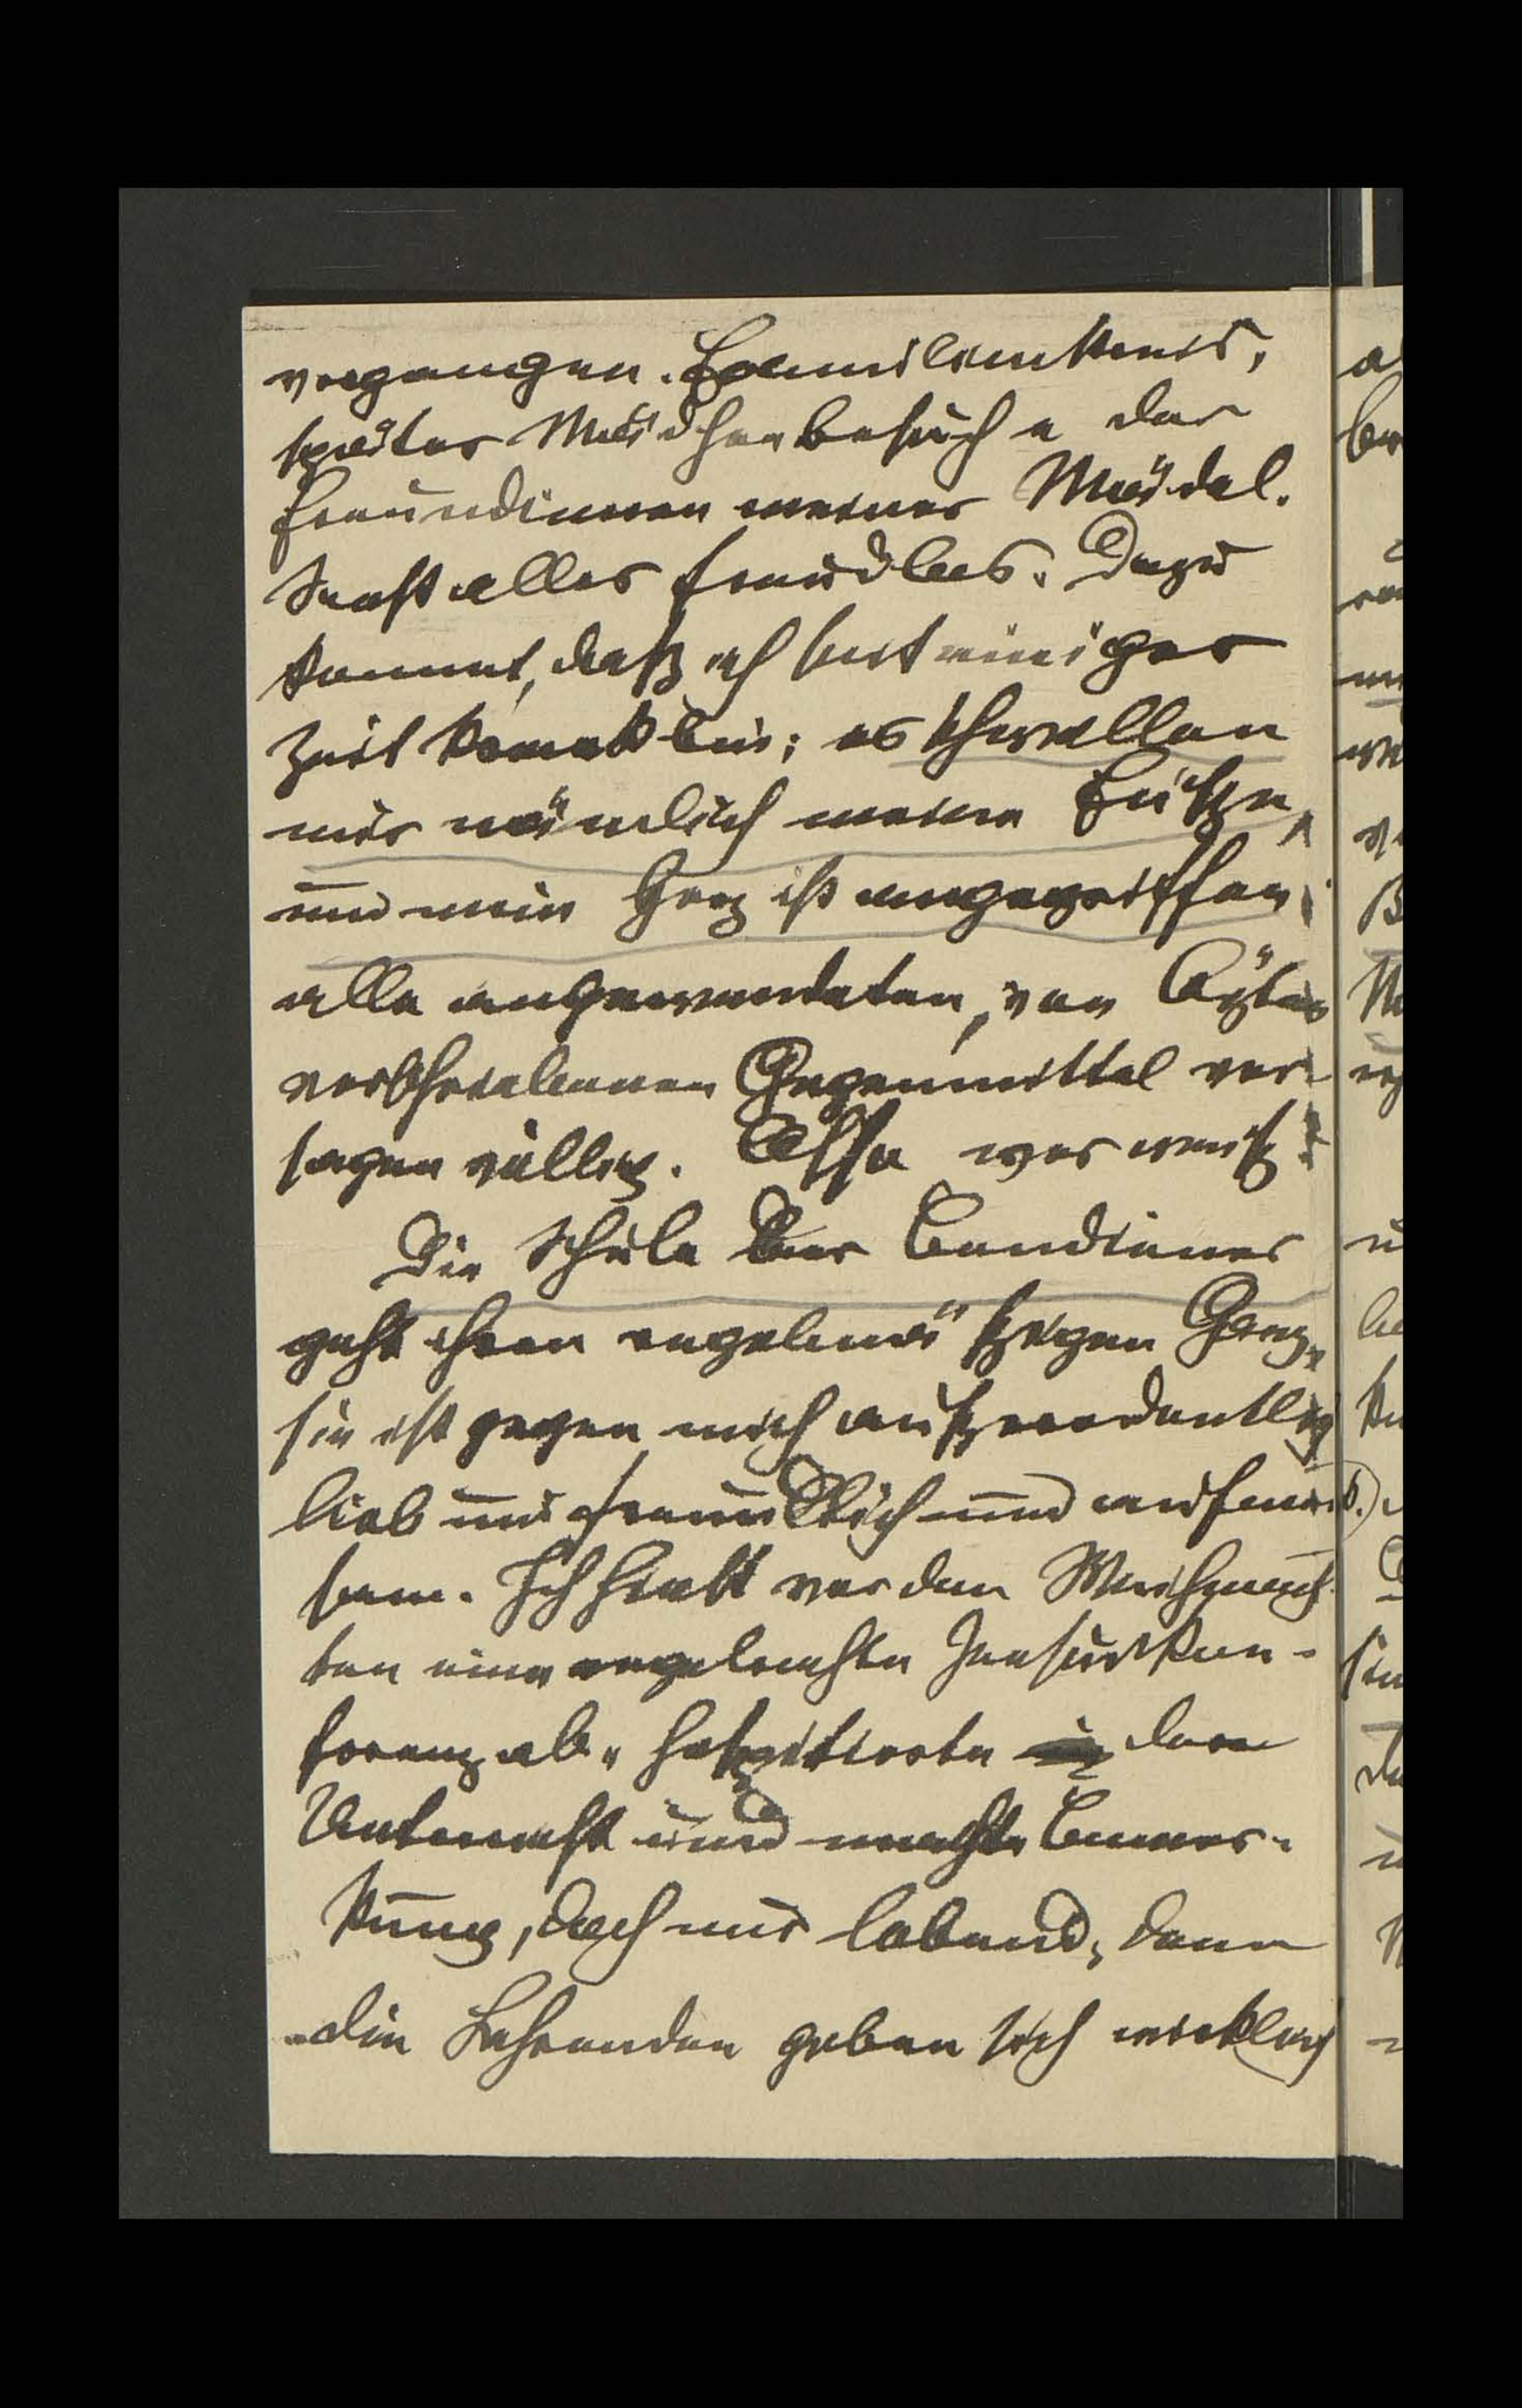 vergangen. Familienkreis,
später Mädchenbesuche der
Freundinnen meiner Mädel.
Sonst alles freudlos. Dazu
kommt, daß ich seit einiger
Zeit krank bin; es schwellen
mir nämlich meine Füße,
und mein Herz ist angegriffen
alle angewendeten, von Ärzten
verschriebenen Gegenmittel ver-
sagen völlig. Also wer weiß!
Die Schule der Bendiener
geht ihren regelmäßigen Gang,
sie ist gegen mich außerordentlich
lieb und freundlich und aufmerk-
sam. Ich hielt vor den Weihnach-
ten eine regelrechte Zensurkon-
ferenz ab, hospitierte dem
Unterricht und machte Bemer-
kung, doch nur lobend, denn
die Lehrenden geben sich wirklich